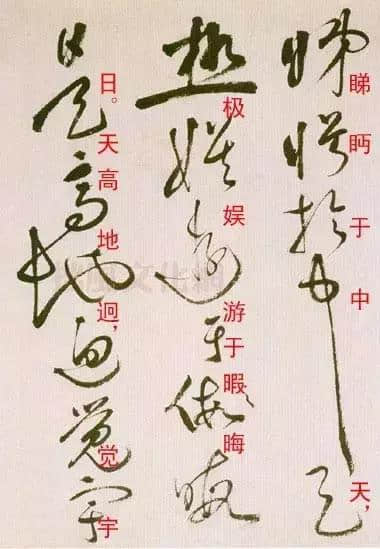 睇眄于中天,
极娱游于暇晦
日。天高地迥,觉宇